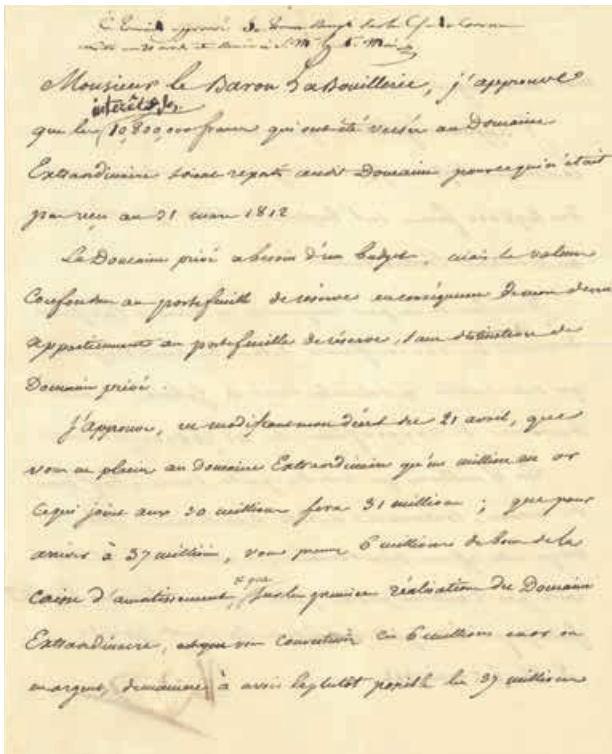 Monsieur le Baron LaBouillerie, j'approuve
intérêts des
que les 10,800,000 francs qui ont été versés au Domaine
Extraordinaire soient audit Domaine pour ce qu'il n'était
pas reçu au 31 mars 1812
Le Domaine privé a besoin d'un budget, mais les valeurs
au portefeuille de réserve en conséquence de mon
appartiennent au portefeuille de réserve, sans distinction de
Domaine privé.
J'approuve, en modifiant mon décret du 21 avril, que
vous ne placiez au domaine Extraordinaire qu'un million en or
ce qui joint aux 30 millions fera 31 millions; que pour
arriver à 37 millions, vous 6 millions de bons de la
Caisse d'amortissement, sur les premières réalisations du Domaine
Extraordinaire, et que vous ces 6 millions en or ou
en argent, de manière à avoir le plutôt possible les 37 millions